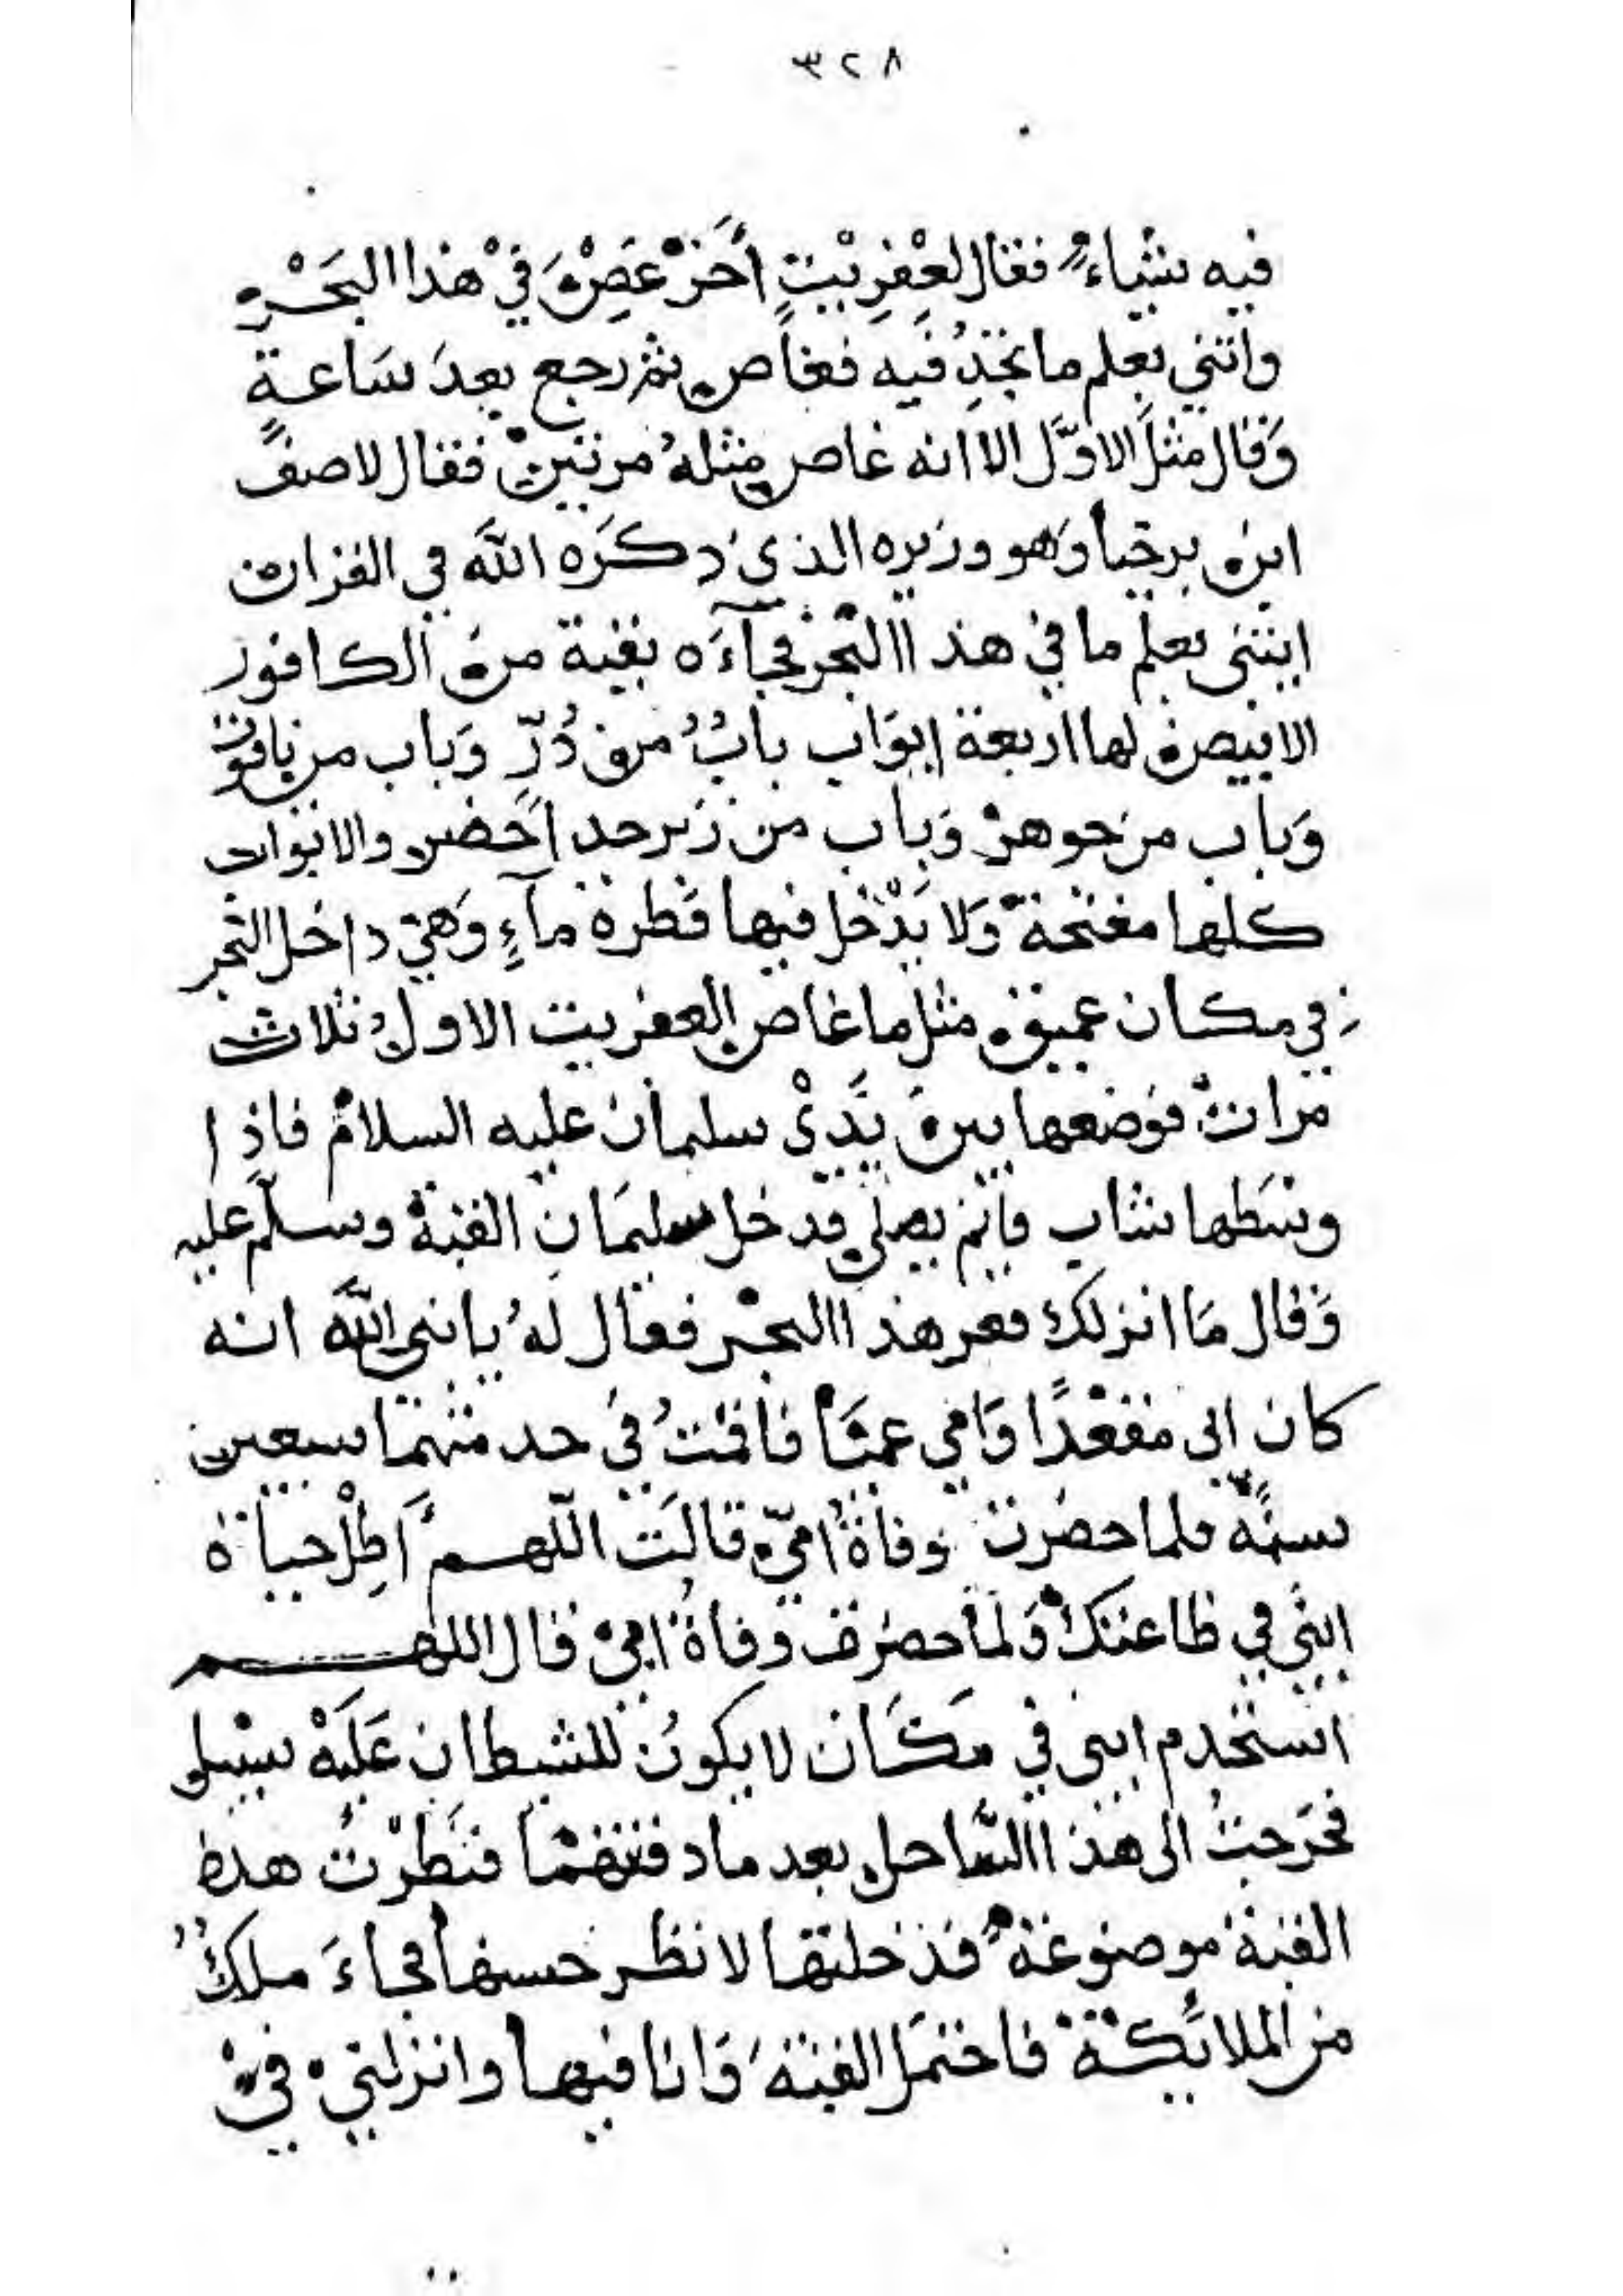 ٣٢٨
فيه شياءً فقال لعفريتٍ أخر غص في هذا البحر
واتني بعلم ما تجد فيه فغاص ثم رجع بعد ساعةٍ
وقال مثل الاوّل الا انه غاص مثلهُ مرتين فقال لاصف
ابن برخيا وهو وزيره الذي ذكره الله في القران
ايتني بعلم ما في هذا البحر فجآءه بقبة من الكافور
الابيض لها اربعة ابواب بابُ من دُرّ وباب من ياقوت
وباب من جوهر وباب من زبرجد اخضر والابواب
كلها مفتحة ولا يدخل فيها قطرة مآءٍ وهي داخل البحر
في مكان عميق مثل ما غاص العفريت الاول ثلاث
مرات فوضعها بين يدي سليمان عليه السلام فاذا
وسطها شاب قايم يصلي فدخل سليمان القبة وسلّم عليه
وقال ما انزلك قعر هذا البحر فقال لهُ يا نبي الله انه
كان ابي مقعدًا وامي عميا فاقمتُ في خدمتهما سبعين
سنة فلما حضرت وفاة امّي قالت اللّهم أطِل حياة
ابني في طاعتك ولما حضرت وفاة ابي قال اللهم
استخدم ابني في مكان لا يكون للشيطان عليه سبيل
فخرجتُ الى هذا السّاحل بعد ما دفنتهما فنظرتُ هذه
القبة موضوعة فدخلتها لانظر حسنها فجاءَ ملكُ
من الملائكة فاحتمل القبة وانا فيها وانزلني في